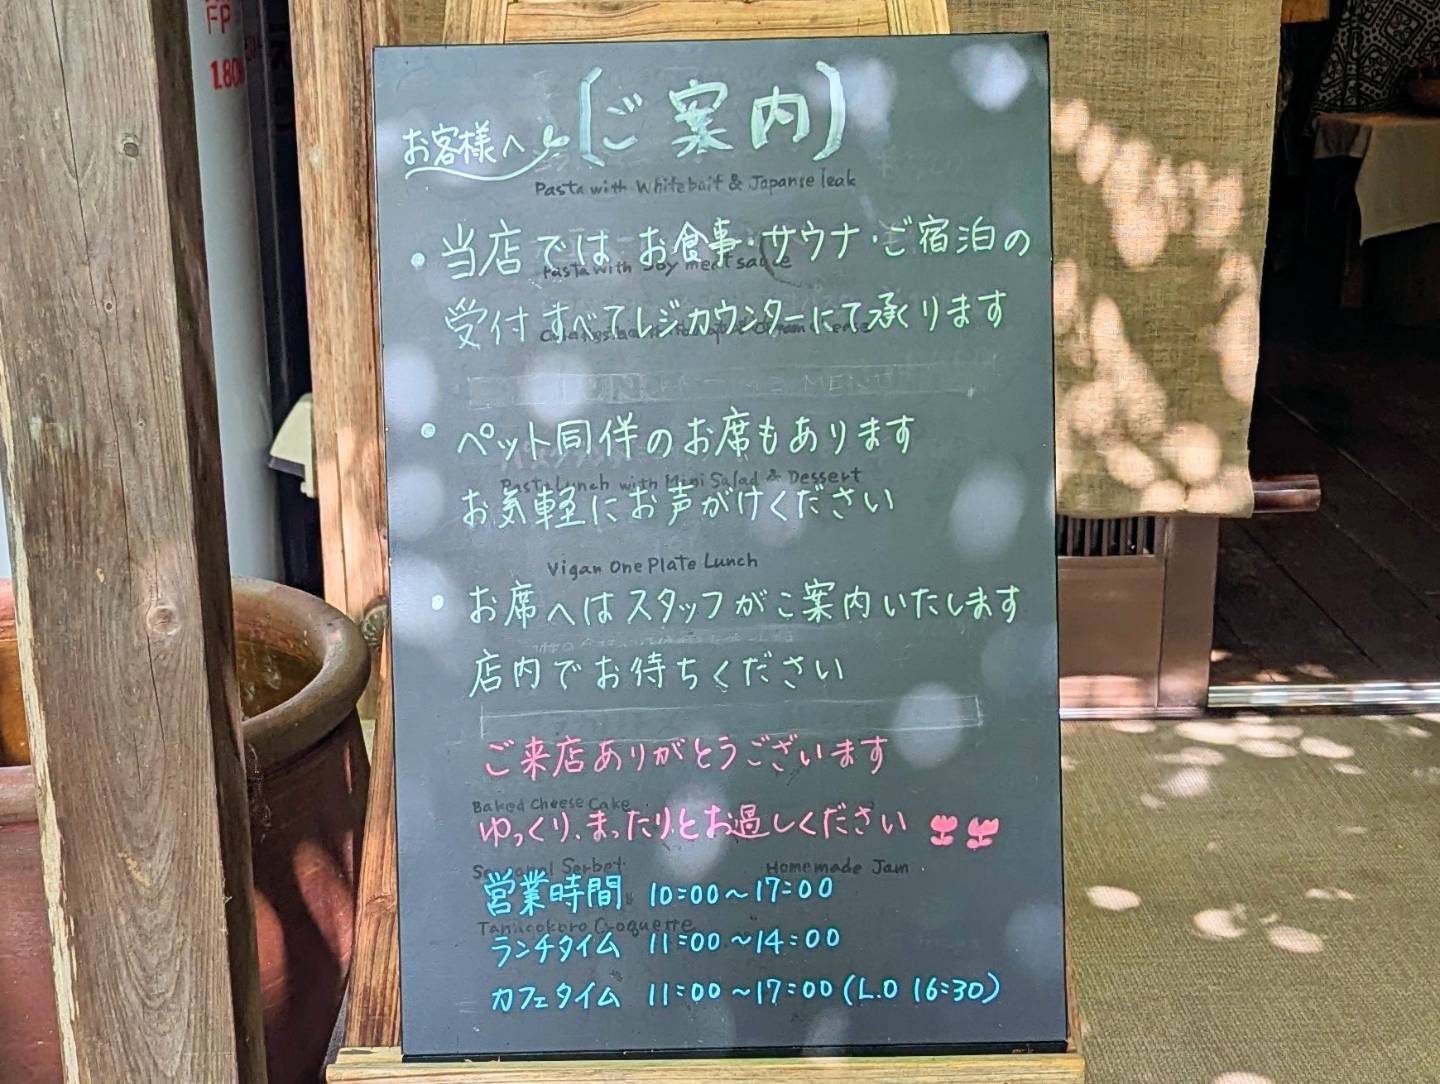 FP
お客様へ
【ご案内】
Pasta with Whitebait & Japanse leak
・当店では お食事・サウナ・ご宿泊の
Pasta with Soy meat sauce
受付 すべてレジカウンターにて承ります
MENU
・ペット同伴のお席もあります
Pasta Lunch with Mini Salad & Dessert
お気軽にお声がけください
Vigan One Plate Lunch
・お席へはスタッフがご案内いたします
店内でお待ちください
ご来店ありがとうございます
Baked Cheese Cake
ゆっくり、まったりとお過しください
Homemade Jam
営業時間 10:00〜17:00
Croquette
ランチタイム 11:00〜14:00
カフェタイム 11:00〜17:00(L.O 16:30)